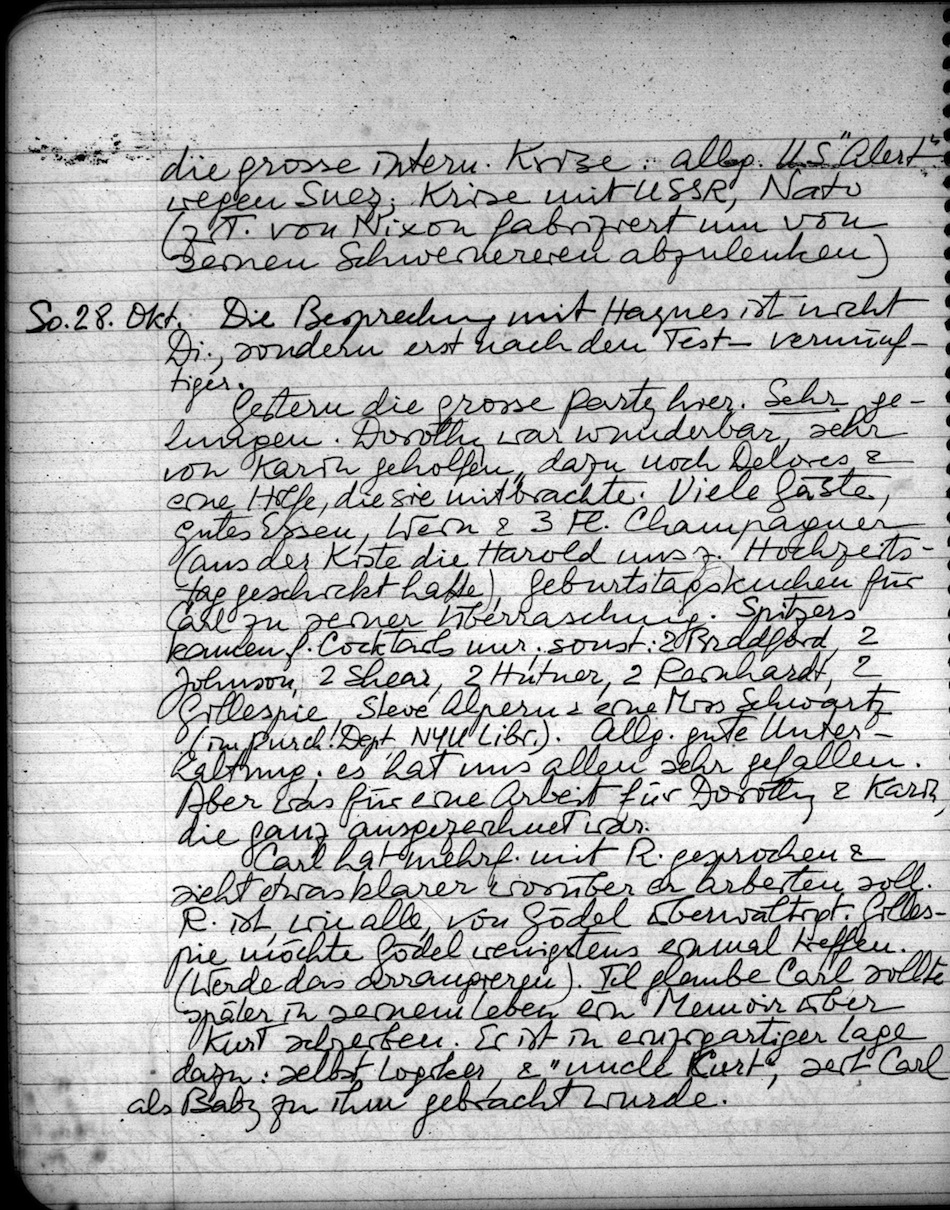 die grosse intern. Krise: allg. U.S. "Alert"
wegen Suez; Krise mit USSR, Nato
(z.T. von Nixon fabriziert um von
seinen Schweinereien abzulenken)
So. 28. Okt. Die Besprechung mit Haynes ist nicht
Di., sondern erst nach den Test – vernünf-
tiger.
Gestern die grosse Party hier. Sehr ge-
lungen. Dorothy war wunderbar, sehr
von Karin geholfen, dazu noch Delores &
eine Hilfe, die sie mitbrachte. Viele Gäste,
gutes Essen, Wein & 3 Fl. Champagner
(aus der Kiste die Harold uns z. Hochzeits-
tag geschickt hatte), Geburtstagskuchen für
Carl zu seiner Überraschung. Spitzers
kamen f. Cocktails nur; sonst: 2 Bradford, 2
Johnson, 2 Shear, 2 Hutner, 2 Reinhardt, 2
Gillespie, Steve Alpern & eine Miss Schwartz
(im Purch. Dept NYU Libr.). Allg. gute Unter-
haltung; es hat uns allen sehr gefallen.
Aber was für eine Arbeit für Dorothy & Karin,
die ganz ausgezeichnet war.
Carl hat mehrf. mit R. gesprochen &
sieht etwas klarer worüber er arbeiten soll.
R. ist, wie alle, von Gödel überwältigt. Gilles-
pie möchte Gödel wenigstens einmal treffen.
(Werde das arrangieren). Ich glaube Carl sollte
später in seinem Leben ein Memoir über
Kurt schreiben. Er ist in einzigartiger Lage
dazu: selbst Logiker, & "uncle Kurt", seit Carl
als Baby zu ihm gebracht wurde.